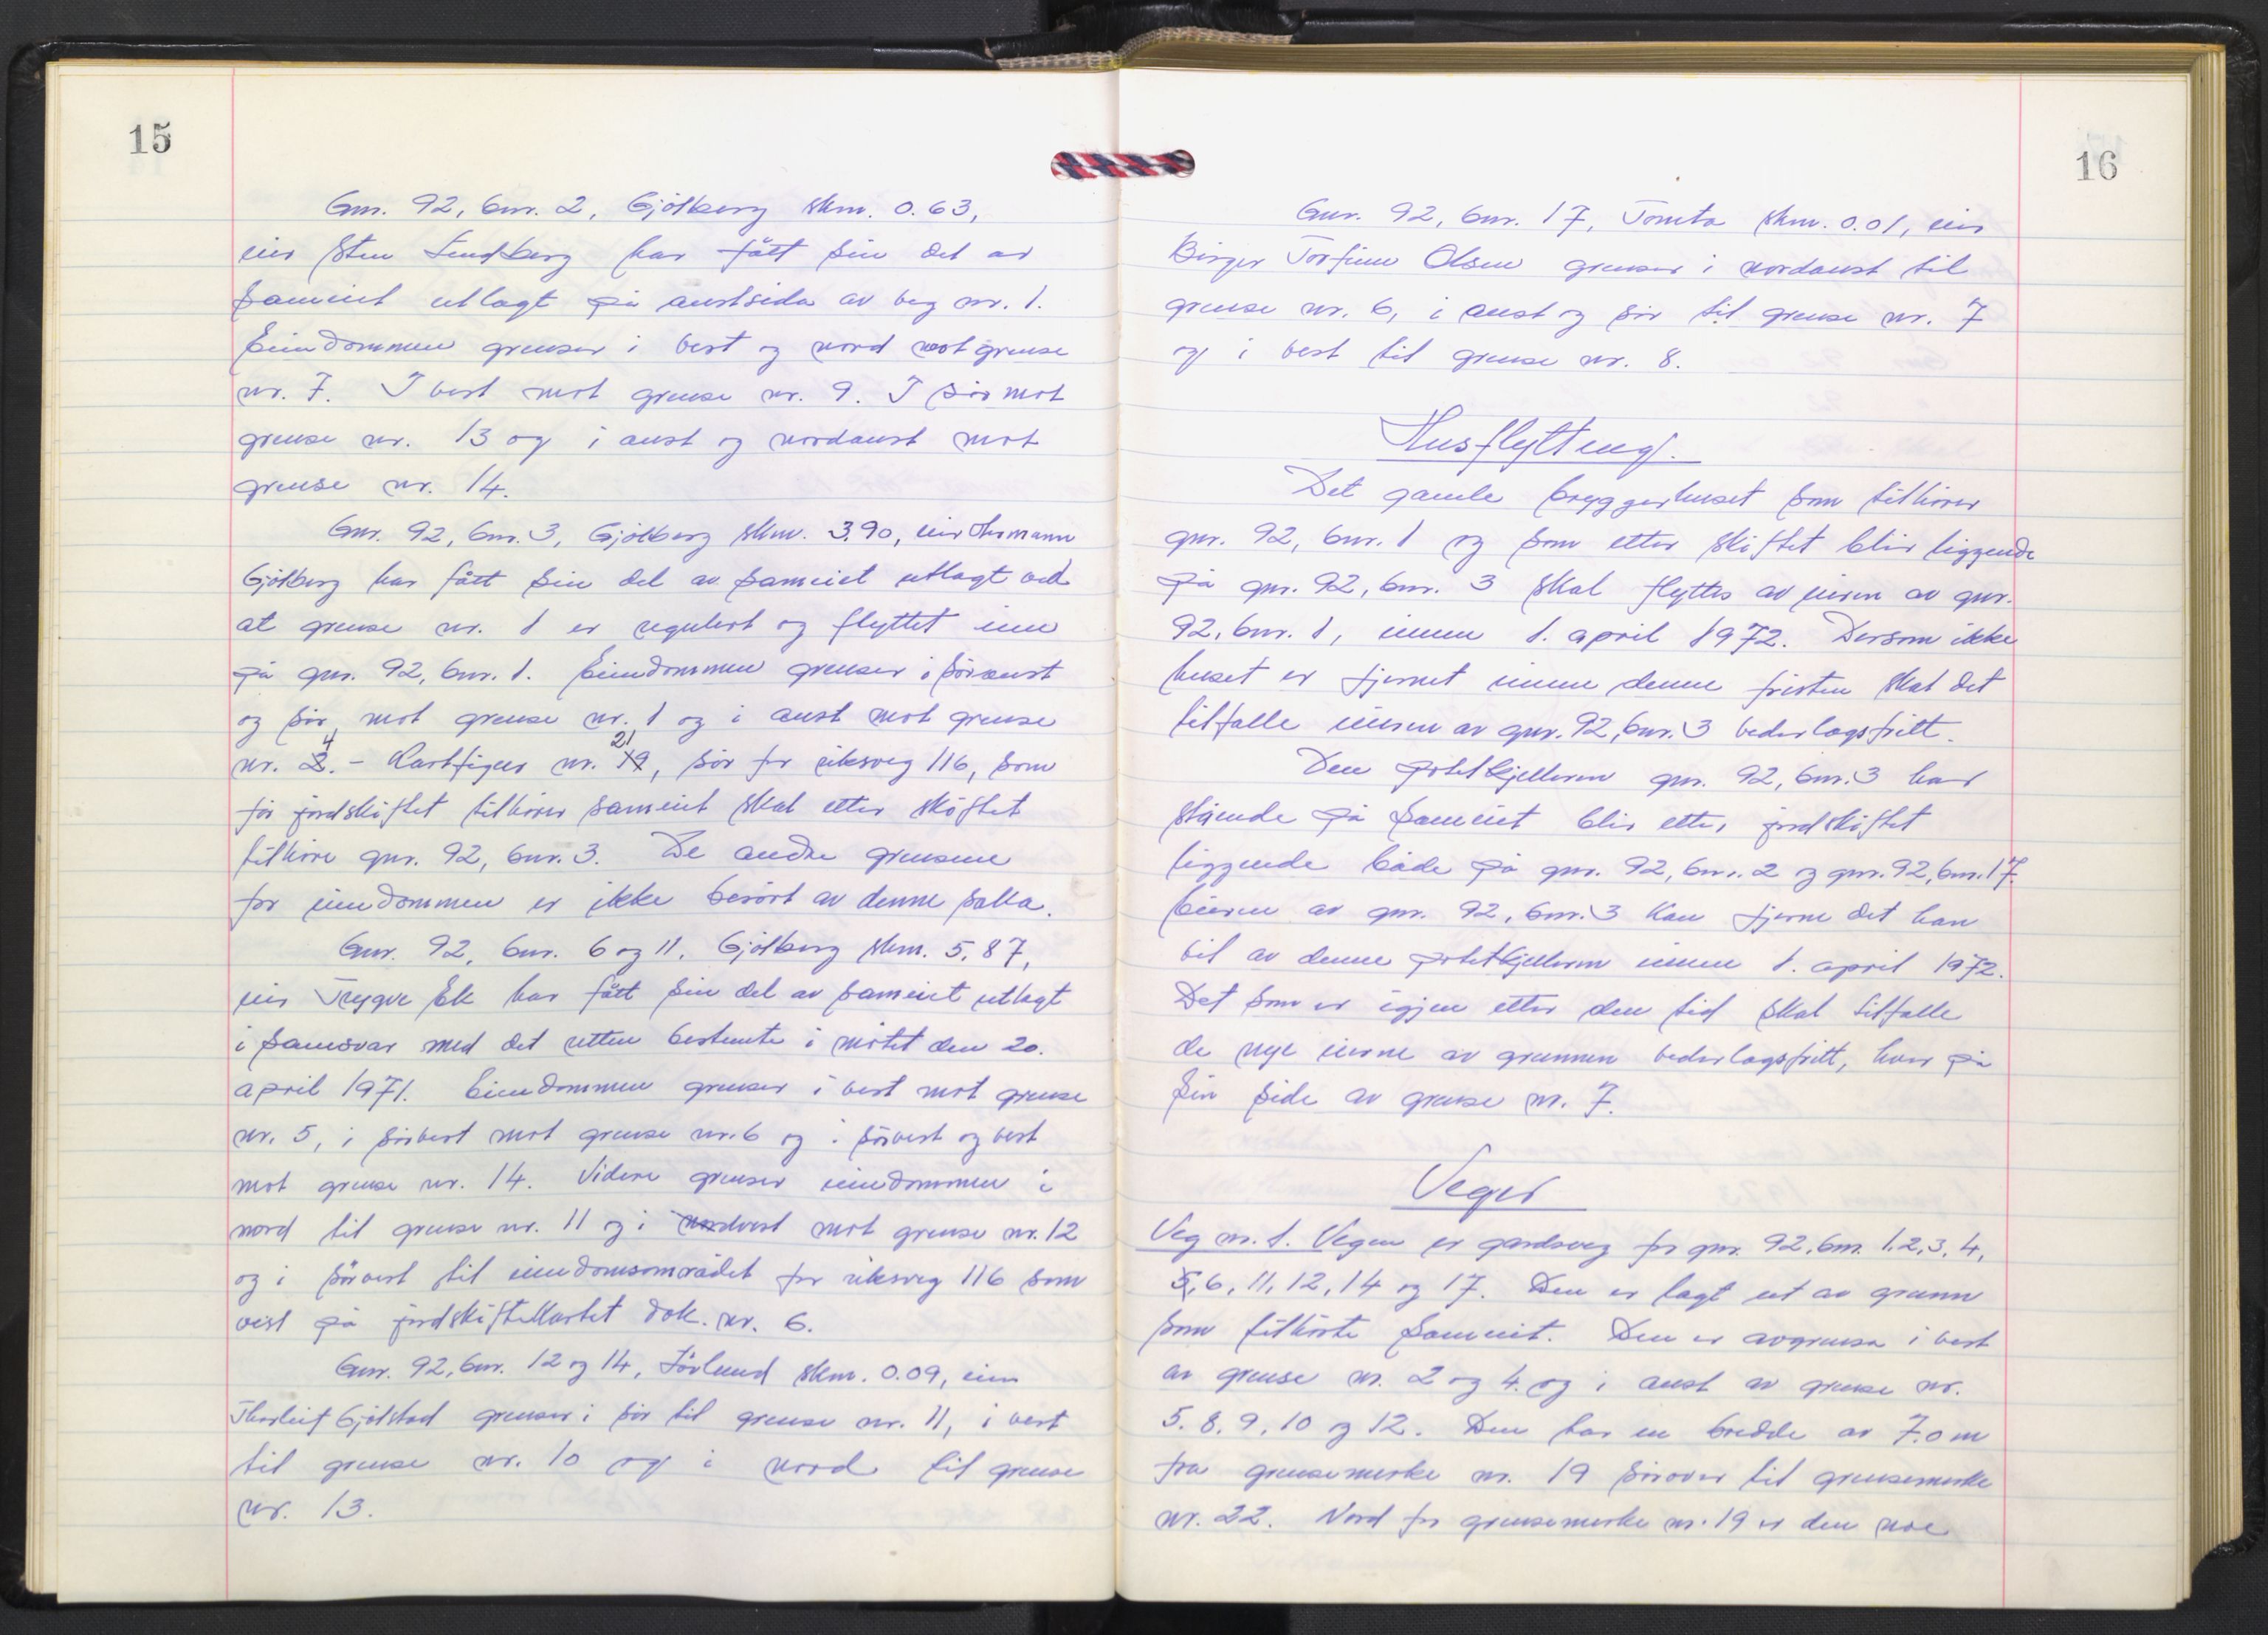 15
Gnr. 92, bnr. 2, Gjölberg skm. 0.63,
eier Sten Lundberg har fått sin del av
sameiet utlagt på austsida av veg nr. 1.
Eiendommen grenser i vest og nord mot grense
nr. 7. I vest mot grense nr. 9. I sör mot
grense nr. 13 og i aust og nordaust mot
grense nr. 14.
Gnr. 92, bnr. 3, Gjölberg skm. 3.90, eier Hermann
Gjölberg har fått sin del av sameiet utlagt ved
at grense nr. 1 er regulert og flyttet inn
på gnr. 92, bnr. 1. Eiendommen grenser i söraust
og sör mot grense nr. 1 og i aust mot grense
nr. 4. - Kartfigur nr. 21, sör for riksveg 116, som
för jordskiftet tilhörer sameiet skal etter skiftet
tilhöre gnr. 92, bnr. 3. De andre grensene
for eiendommen er ikke berört av denne saka.
Gnr. 92, bnr. 6 og 11, Gjölberg skm. 5,87,
eier Trygve Ek har fått sin del av sameiet utlagt
i samsvar med det retten bestemte i mötet den 20.
april 1971. Eiendommen grenser i vest mot grense
nr. 5, i sörvest mot grense nr. 6 og i sörvest og vest
mot grense nr. 14. Videre grenser eiendommen i
nord til grense nr. 11 og i nordvest mot grense nr. 12
og i sörvest til eiendomsområdet for riksveg 116 som
vist på jordskiftekartet dok. nr. 6.
Gnr. 92, bnr. 12 og 14, Lövlund skm. 0.09, eier
Thorleif Gjölstad grenser i sör til grense nr. 11, i vest
til grense nr. 10 og i nord til grense
nr. 13.
16
Gnr. 92, bnr. 17, Tomta skm. 0.01, eier
Birger Torfinn Olsen grenser i nordaust til
grense nr. 6, i aust og sör til grense nr. 7
og i vest til grense nr. 8.
Husflytting.
Det gamle bryggerhuset som tilhörer
gnr. 92, bnr. 1 og som etter skiftet blir liggende
på gnr. 92, bnr. 3 skal flyttes av eieren av gnr.
92, bnr. 1, innen 1. april 1972. Dersom ikke
huset er fjernet innen denne fristen skal det
tilfalle eieren av gnr. 92, bnr. 3 vederlagsfritt.
Den potetkjelleren gnr. 92, bnr. 3 har
stående på sameiet blir etter jordskiftet
liggende både på gnr. 92, bnr. 2 og gnr. 92, bnr. 17.
Eieren av gnr. 92, bnr. 3 kan fjerne det han
vil av denne potetkjelleren innen 1. april 1972.
Det som er igjen etter den tid skal tilfalle
de nye eierne av grunnen vederlagsfritt, hver på
sin side av grense nr. 7.
Veger
Veg nr. 1. Vegen er gardsveg for gnr. 92, bnr. 1, 2, 3, 4,
5, 6, 11, 12, 14 og 17. Den er lagt ut av grunn
som tilhörte sameiet. Den er avgrensa i vest
av grense nr. 2 og 4. og i aust av grense nr.
5. 8. 9, 10 og 12. Den har en bredde av 7.0 m
fra grensemerke nr. 19 sörover til grensemerke
nr. 22. Nord for grensemerke nr. 19 er den noe